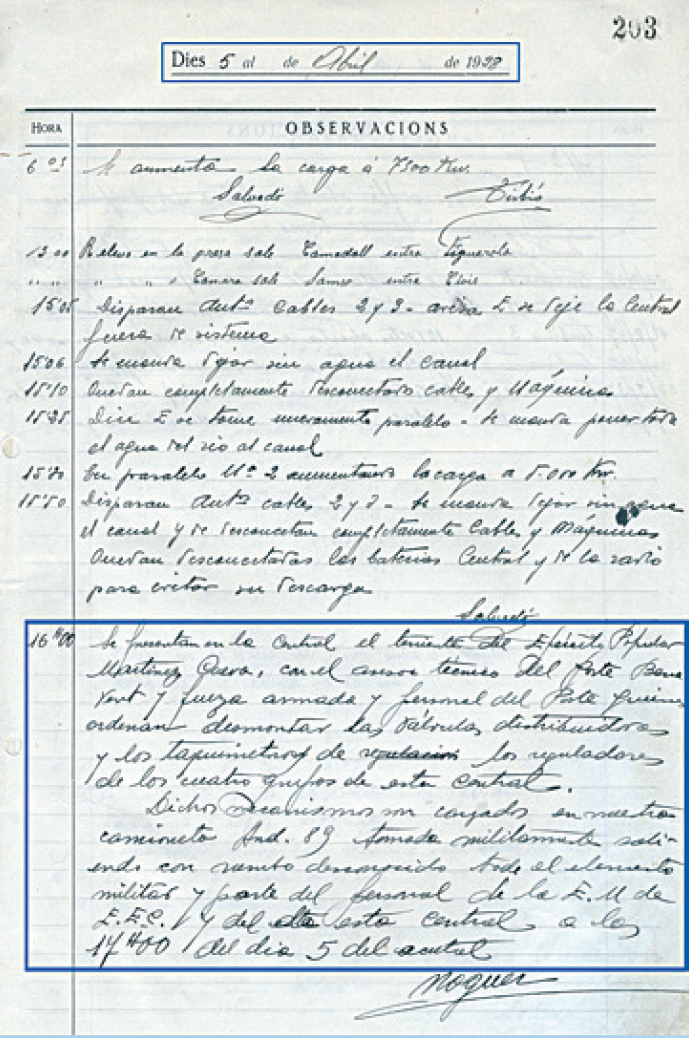 203
Dies 5 al de Abril de 1938
HORA OBSERVACIONS
6 05 Se aumenta la carga á 7500 Kw.
Salvadó Tribió
13 00 Relevo en la presa sale Camadall entra Figuerola
" " " " Camara sale entra
15'05 Disparan Autº Cables 2 y 3 - avisa E se deje la Central
fuera de sistema
15'06 Se manda dejar sin agua el canal
15'10 Quedan completamente desconectado cables y Máquinas
15'25 Dice E se tome nuevamente paralelo - Se manda poner toda
el agua del rio al canal
15'30 En paralelo Nº 2 aumentando la carga a 5.000 Kw.
15'50 Disparan Autº cables 2 y 3 - Se manda dejar sin agua
el canal y se desconectan completamente Cables y Máquinas
Quedan desconectadas las baterias Central y de la radio
para evitar su descarga
Salvadó
16 H00 Se presentan en la Central el teniente del Ejército Popular
Martinez con el asesor técnico del
y fuerza armada y personal del
ordenan desmontar las válvulas distribuidoras
y los taquimetros de regulacion los reguladores
de los cuatro grupos de esta central.
Dichos mecanismos son cargados en nuestra
camioneta Ind. 89 tomada militarmente sali-
endo con rumbo desconocido todo el elemento
militar y parte del personal de la E. M de
E.E.C. y del de esta central a las
17 H00 del dia 5 del actual
Noguer